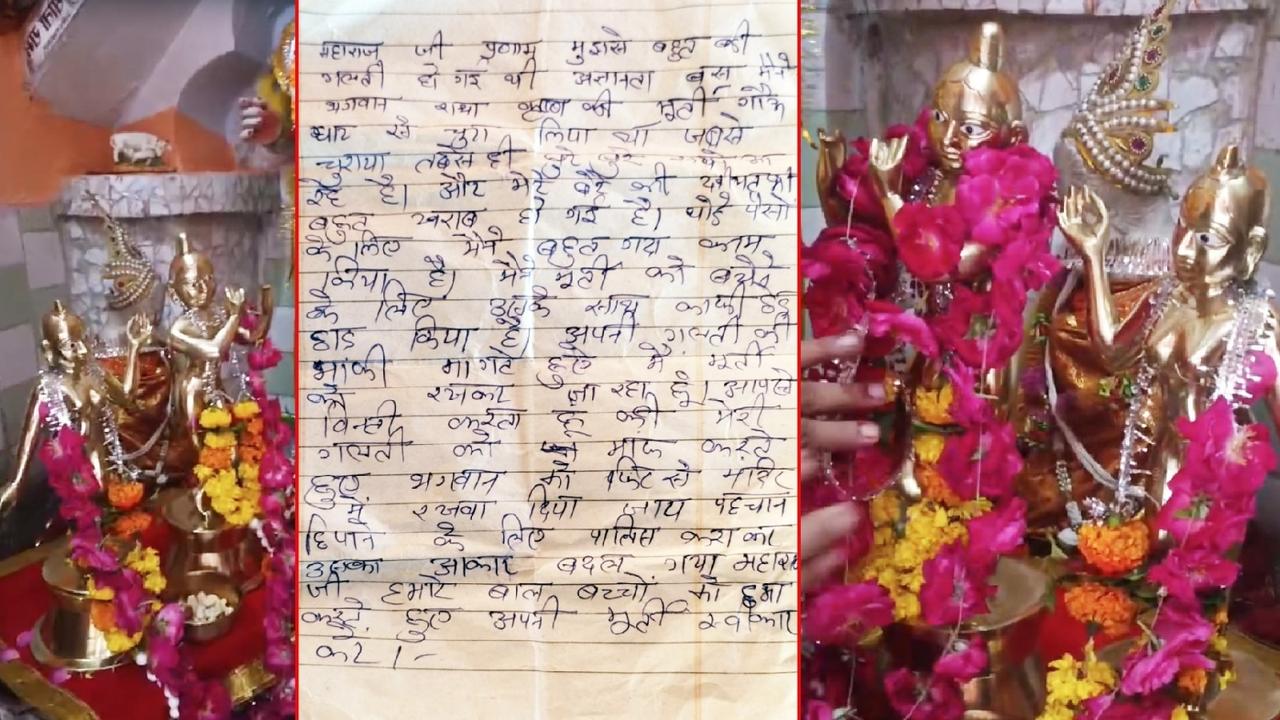 महाराज जी प्रणाम मुझसे बहुत बडी
गलती हो गई थी अज्ञानता बस मैंने
भगवान राधा कृष्ण की मूर्ती गौऊ
घाट से चुरा लिया था जबसे
चुराया तबसे ही बुरे बुरे
रहे है। और मेरे बेटे की तबीयत भी
बहुत खराब हो गई है। थोडे पैसो
के लिए मैने बहुत गन्दा काम
किया है। मैने मूर्ती को बेचने
के लिए उसके साथ काफी छेड
छाड़ किया है। अपनी गलती की
मांफी मांगते हुऐ मै मूर्ती
को रखकर जा रहा हूँ। आपसे
विनती करता हू की मेरी
गलती को माफ करते
हुए भगवान को फिर से मंदिर
में रखवा दिया जाय पहचान
छिपाने के लिए पालिस कराकर
उसका आकार बदल गया महाराज
जी हमारे बाल बच्चों को क्षमा
करते हुए अपनी मूर्ती स्वीकार
करे।-